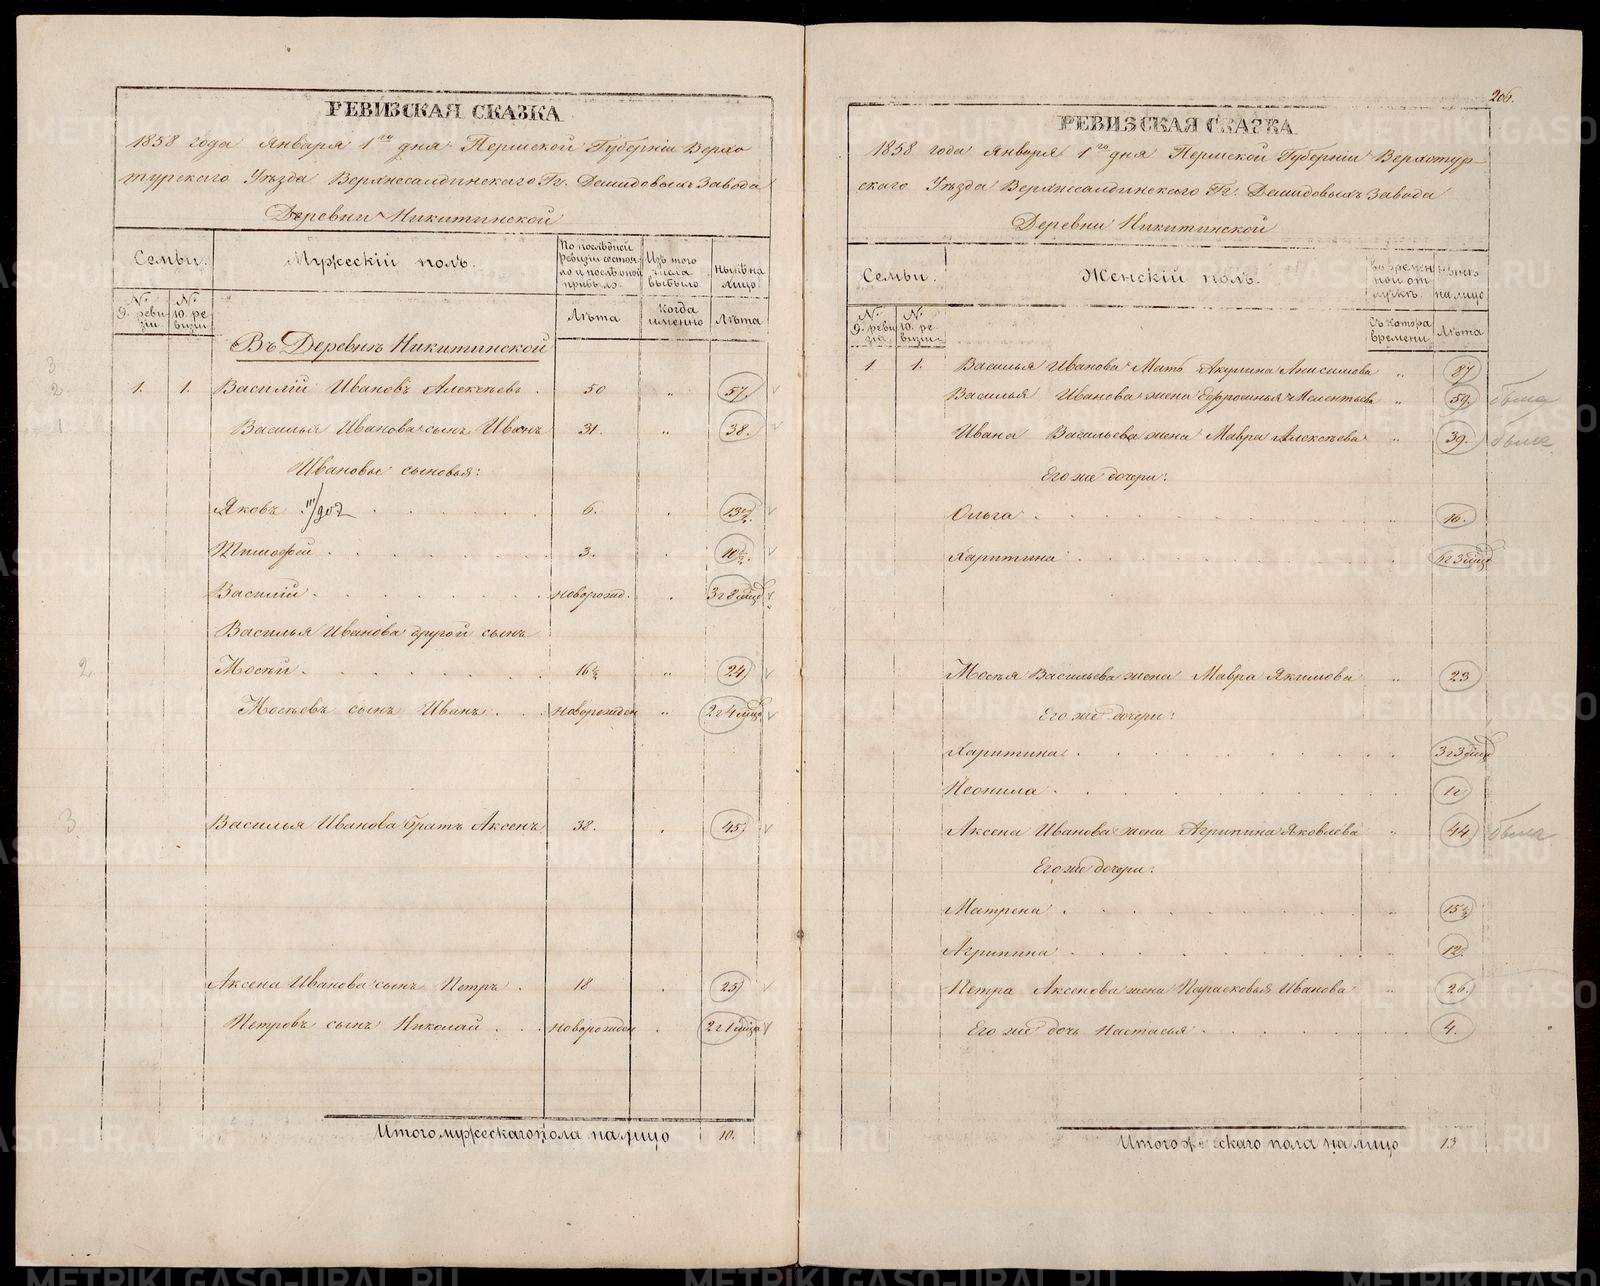 РЕВИЗСКАЯ СКАЗКА
1858 года Января 1го дня Пермской Губерніи Верхо
турскаго Уѣзда Верхнесалдинскаго Гг. Демидовыхъ Завода
Деревни Никитинской
Семьи.
Мужескій полъ.
По послѣдней ревизіи состояло и послѣ оной прибыло.
Изъ того числа выбыло.
нынѣ на лицо.
№ 9. ревизіи
№ 10. ревизіи
Лѣта
Когда именно
Лѣта
Въ Деревнѣ Никитинской
3
2
1. 1. Василій Ивановъ Алексѣевъ . 50 „ 57.
Василья Иванова сынъ Иванъ 31. „ 38.
Ивановы сыновья:
Яковъ 6. 13½
Тимофей 3. 10½
Василій новорожд. 3 г 8 мцѣ
Василья Иванова другой сынъ
2 Мосѣй 16½ „ 24
Мосѣевъ сынъ Иванъ новорожден „ 2 г 4 мцѣ
3 Василья Иванова братъ Аксенъ 38. 45
Аксена Иванова сынъ Петръ 18 25
Петровъ сынъ Николай новорожден 2 г 1 мцѣ
Итого мужескаго пола на лицо 10.
206.
РЕВИЗСКАЯ СКАЗКА
1858 года Января 1го дня Пермской Губерніи Верхотур
скаго Уѣзда Верхнесалдинскаго Гг. Демидовыхъ Завода
Деревни Никитинской
Семьи.
Женскій полъ.
Во временной отлучкѣ.
нынѣ на лицо
№ 9. ревизіи
№ 10. ревизіи
Съ котора времени
Лѣта
1 1. Василья Иванова Мать Акулина Анисимова „ 87
Василья Иванова жена Ефросинья Мелентьева „ 59.
Ивана Васильева жена Мавра Алексѣева „ 39.
Его же дочери:
Ольга 16.
Харитина 6 г 3 мцѣ
Мосѣя Васильева жена Мавра Якимова „ 23
Его же дочери:
Харитина 3 г 3 мцѣ
Неонила 1 г
Аксена Иванова жена Агрипина Яковлева „ 44
Его же дочери:
Матрена 15½
Агрипина 12
Петра Аксенова жена Парасковья Иванова „ 26.
Его же дочь Настасья 4.
Итого женскаго пола на лицо 13
METRIKI.GASO-URAL.RU